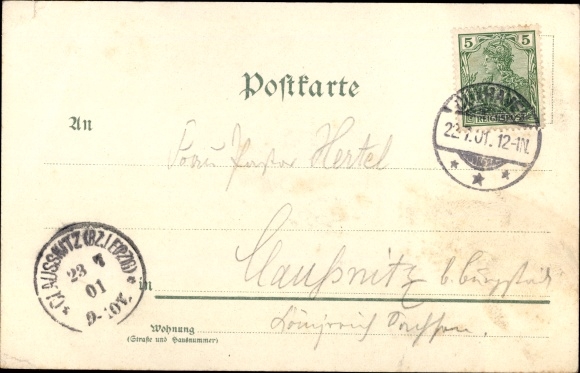 5 5
REICHSPOST
CUXHAVEN
22.7.01. 12-1N.
Postkarte
An
Frau Pastor Hertel
Claußnitz b. Burgstädt
in
Königreich Sachsen.
Wohnung
(Straße und Hausnummer)
CLAUSSNITZ (BZ. LEIPZIG)
23 7
01